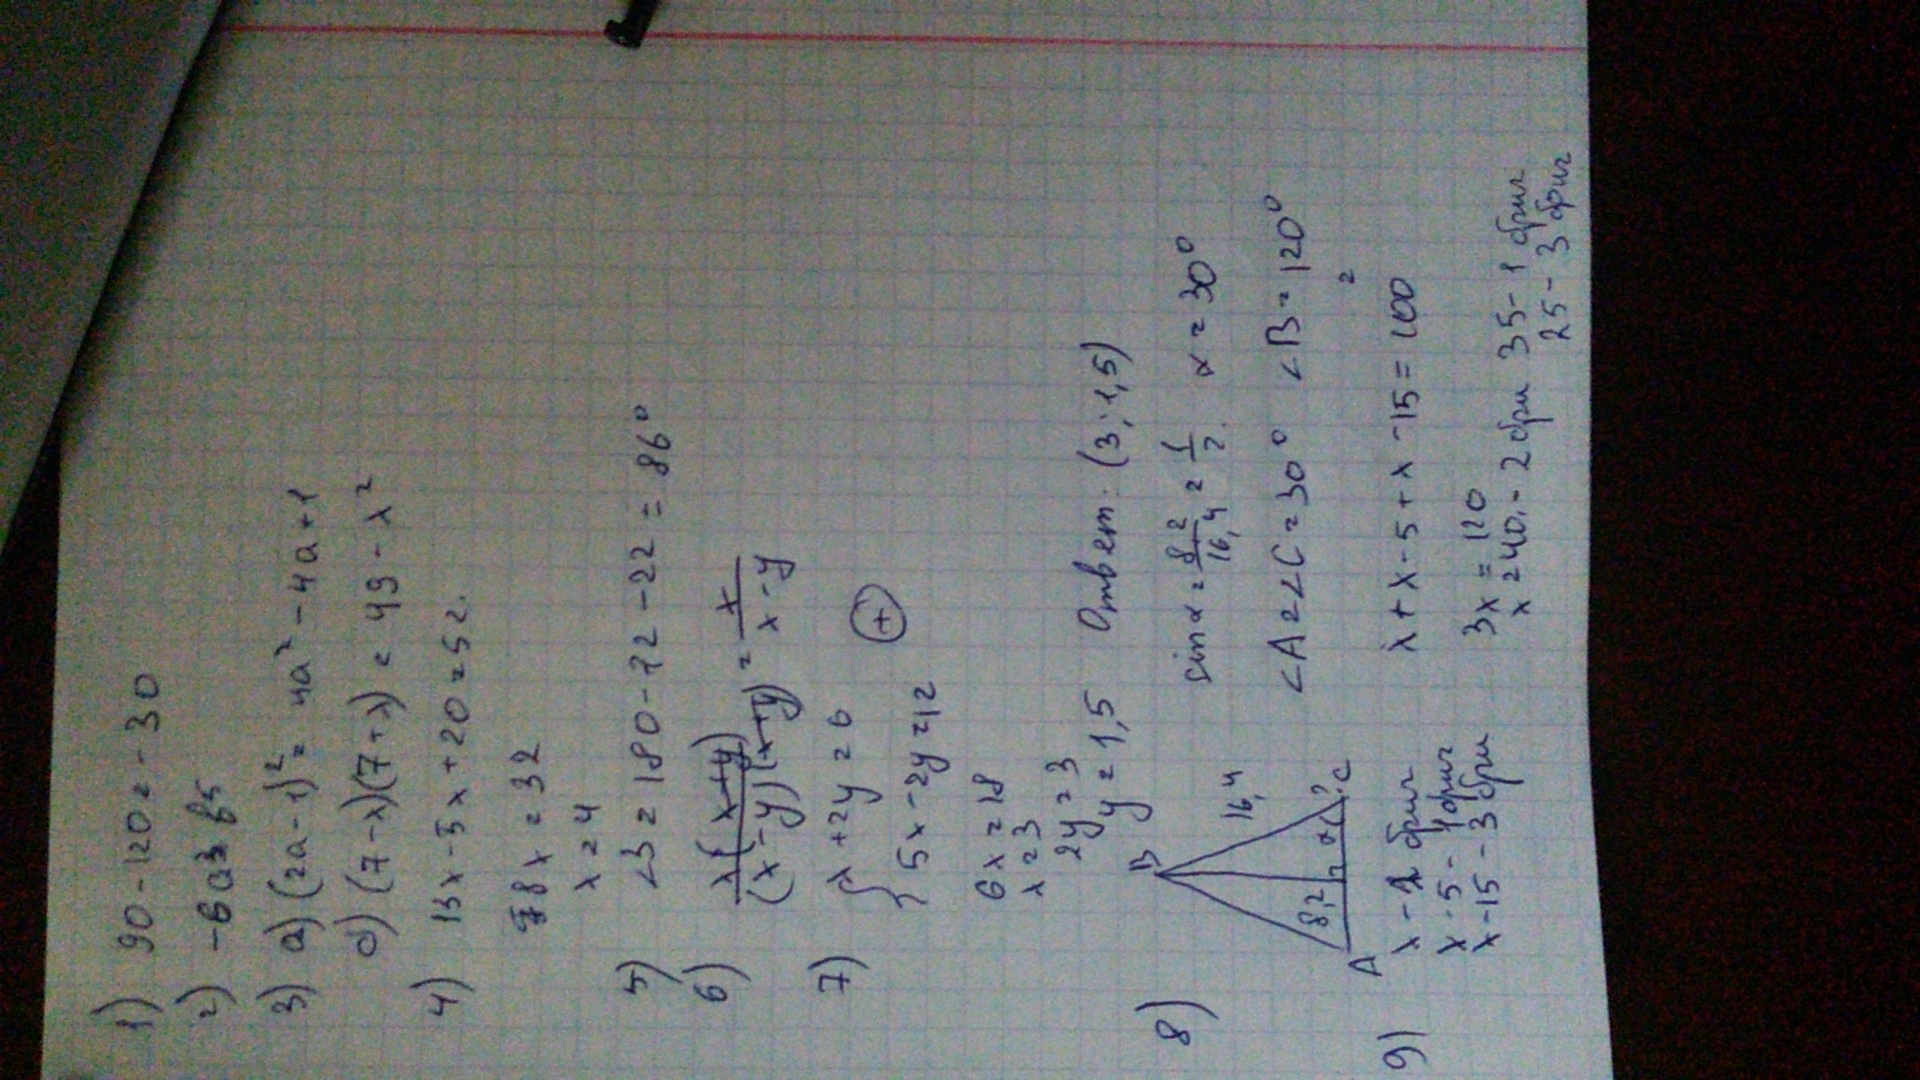 1) 90 - 120 = - 30
2) - 6a3 b5
3) a) (2a - 1)² = 4a² - 4a + 1
б) (7 - x)(7 + x) = 49 - x²
4) 13x - 5x + 20 = 52.
8x = 32
x = 4
5) ∠3 = 180 - 72 - 22 = 86°
6) x(x+y) / (x-y)(x+y) = x / x-y
7) { x + 2y = 6
5x - 2y = 12 (+)
6x = 18
x = 3
2y = 3
y = 1,5 Ответ: (3; 1,5)
8) B 16,4 8,2 α ? A C
sin α = 8,2 / 16,4 = 1/2. α = 30°
∠A = ∠C = 30° ∠B = 120°
2
9) x - 2 бриг
x - 5 - 1 бриг
x - 15 - 3 бри
x + x - 5 + x - 15 = 100
3x = 120
x = 40. - 2 бри 35 - 1 бриг
25 - 3 бриг